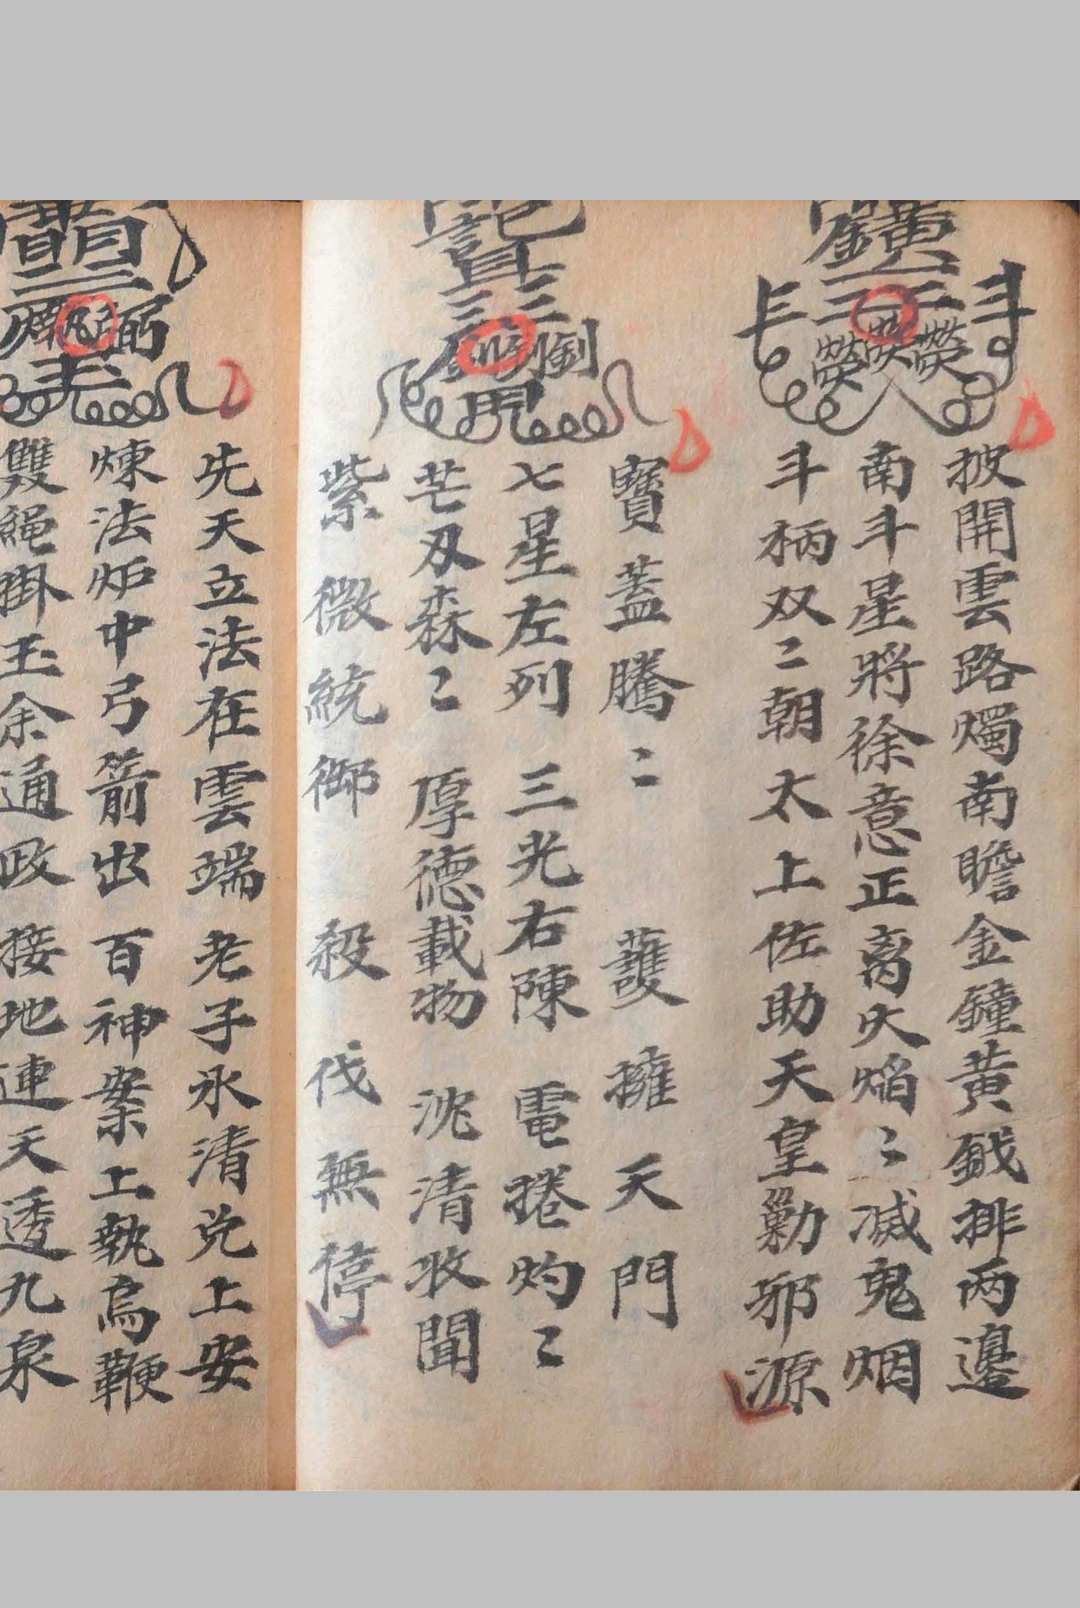 披開雲路燭南瞻金鐘黃鉞排两邊
南斗星將徐意正离火焰〻滅鬼烟
斗柄双〻朝太上佐助天皇勦邪源
寶蓋騰〻 護擁天門
七星左列 三光右陳 電捲灼〻
芒刃森〻 厚德載物 沈清收聞
紫微統御 殺伐無停
先天立法在雲端 老子氷清兑上安
煉法炉中弓箭出 百神案上執烏鞭
雙繩掛玉余通政 接地連天透九泉